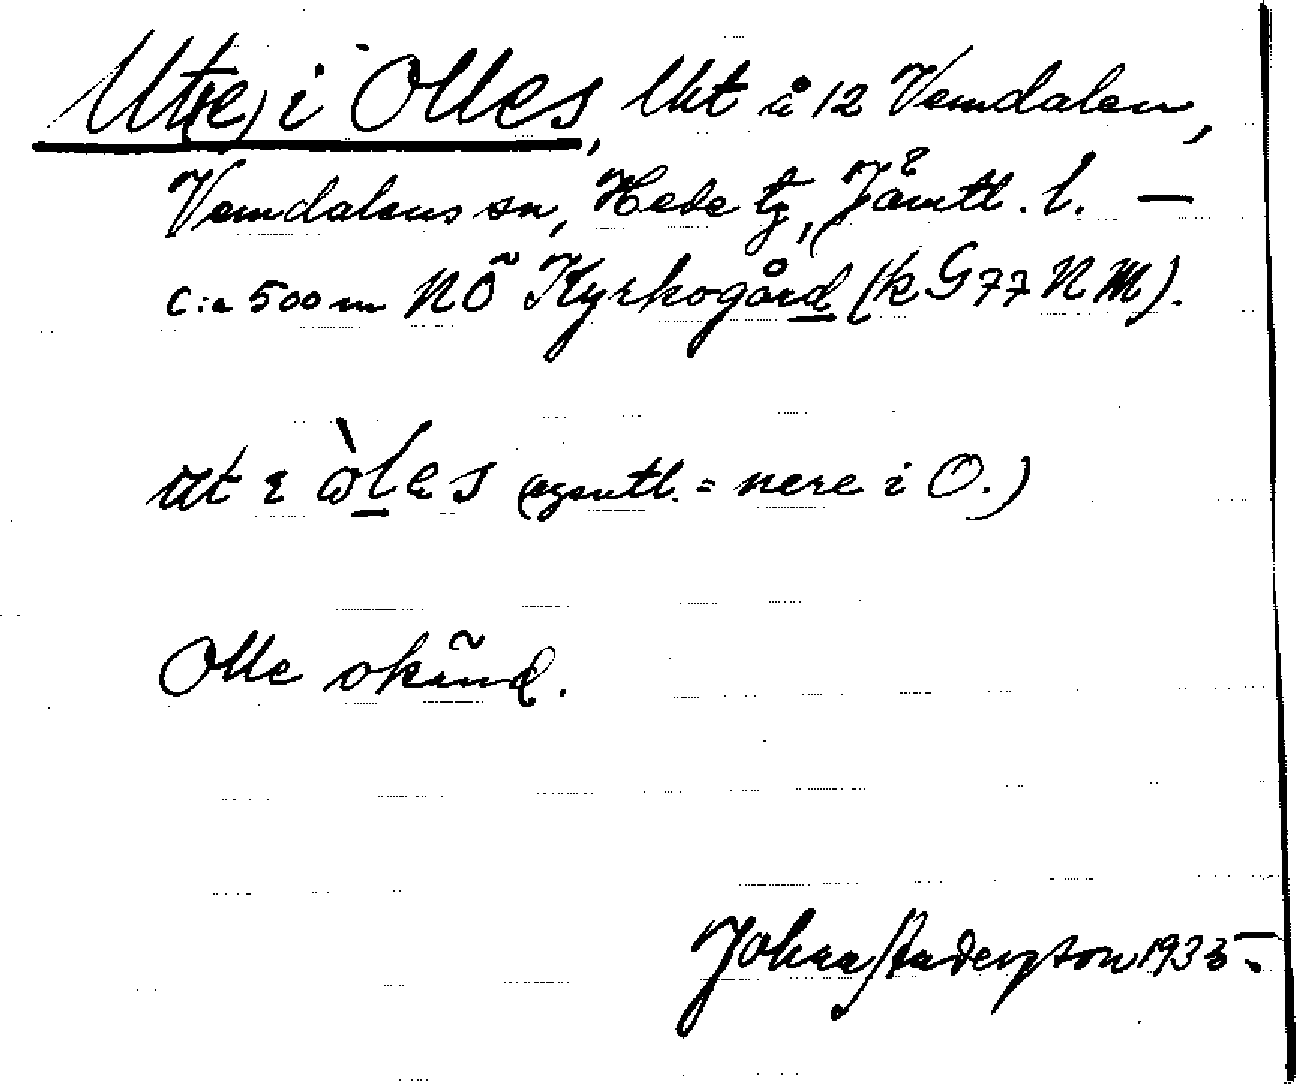 Ut(e) i Olles, lkt å 12 Vemdalen,
Vemdalens sn, Hede tg, Jämtl. l. —
c:a 500 m NÖ Kyrkogård (k G77 NM).
ut ɪ òles (egentl. = nere i O.)
Olle okänd.
Johan Anderzton 1935.